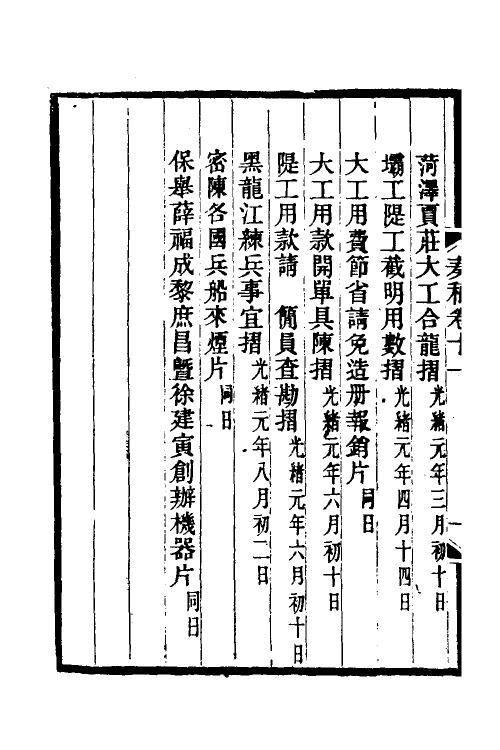 奏稿卷十一
菏澤賈莊大工合龍摺光緒元年三月初十日
壩工隄工截明用數摺光緒元年四月十四日
大工用費節省請免造册報銷片同日
大工用款開單具陳摺光緒元年六月初十日
隄工用款請 簡員查勘摺光緒元年六月初十日
黑龍江練兵事宜摺光緒元年八月初二日
密陳各國兵船來煙片同日
保舉薛福成黎庶昌曁徐建寅創辦機器片同日